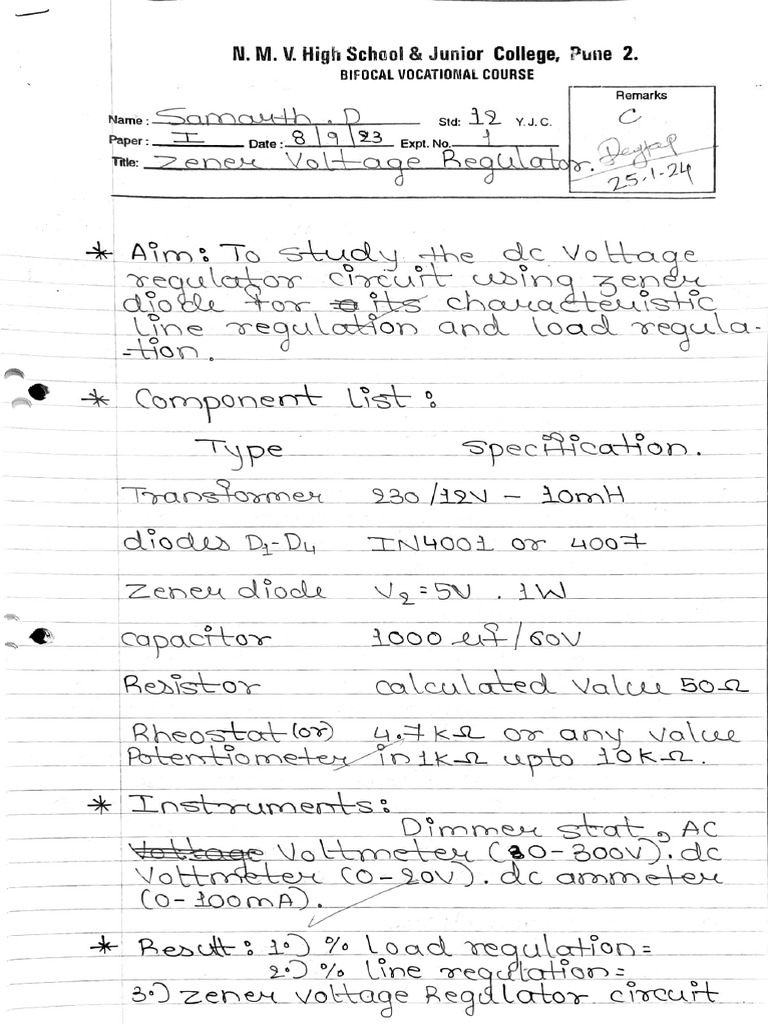 N. M. V. High School & Junior College, Pune 2.
BIFOCAL VOCATIONAL COURSE
Remarks
C
Name : Samarth . D Std: 12 Y. J. C.
Paper : I Date : 8/9/23 Expt. No. 1
Title: Zener Voltage Regulator.
25-1-24
* Aim: To study the dc voltage
regulator circuit using zener
diode for its characteristic
line regulation and load regula-
-tion.
* Component list :
Type Specification.
Transformer 230/12V - 10mH
diodes D1-D4 IN4001 or 4007
Zener diode V2=5V . 1W
capacitor 1000 uf/60V
Resistor calculated value 50Ω
Rheostat (or) 4.7kΩ or any value
Potentiometer in 1kΩ upto 10kΩ.
* Instruments:
Dimmer stat, AC
Voltmeter (0-300V). dc
Voltmeter (0-20V). dc ammeter
(0-100mA).
* Result: 1.) % load regulation=
2.) % line regulation=
3.) Zener Voltage Regulator circuit